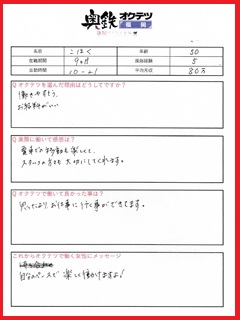 奥鉄オクテツ
名前 こはく 年齢 50
在籍期間 9ヶ月 風俗経験 5
出勤時間 10-21 平均月収 80万
Q オクテツを選んだ理由はどうしてですか？
働きやすそう、
お給料がいい
Q 実際に働いて感想は？
電車での移動も楽しくて、
スタッフの方も大切にしてくれます。
Q オクテツで働いて良かった事は？
思ったより、お仕事に行く事ができてます。
これからオクテツで働く女性にメッセージ
自分のペースで楽しく働けますよ！